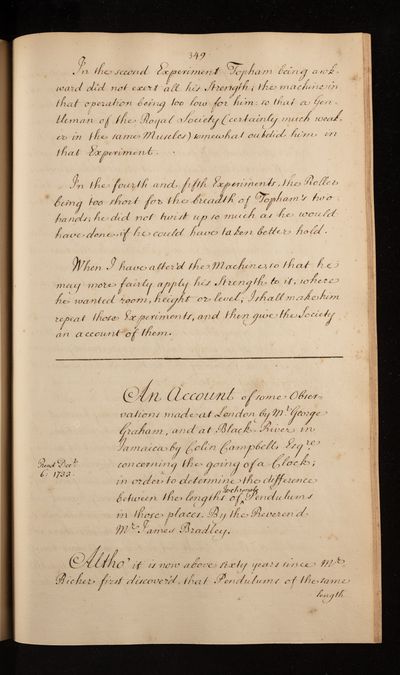 349
In the second Experiment Topham being awk-
ward did not exert all his Strength; the machine in
that operation being too low for him: so that a Gen-
tleman of the Royal Society (certainly much weak-
er in the same Muscles) somewhat outdid him in
that Experiment.
In the fourth and fifth Experiments, the Roller
being too short for the breadth of Topham's two
hands, he did not twist up so much as he would
have done if he could have taken better hold.
When I have alter'd the Machine, so that he
may more fairly apply his Strength to it, where
he wanted room, height or level, I shall make him
repeat those Experiments, and then give the Society
an account of them.
An Account of some Obser-
vations made at London by Mr. George
Graham, and at Black-River in
Jamaica by Colin Campbell Esqre.
concerning the going of a Clock;
in order to determine the difference
between the lengths of Isochronal Pendulums
in those places. By the Reverend
Mr. James Bradley.
Read Decr.
6. 1733.
Altho' it is now above sixty years since Mr.
Richer first discover'd, that Pendulums of the same
length